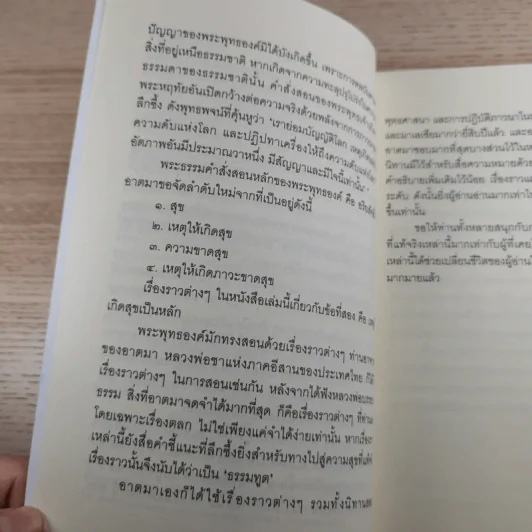 ปัญญาของพระพุทธองค์มิได้บังเกิดขึ้น เพราะการ
สิ่งที่อยู่เหนือธรรมชาติ หากเกิดจากความทะลุปรุโปร่งใน
ธรรมดาของธรรมชาตินั้น คำสั่งสอนของพระพุทธเจ้า
พระหฤทัยอันเปิดกว้างต่อความจริงด้วยพลังจากการภาวนา
ลึกซึ้ง ดังพุทธพจน์ที่คุ้นหูว่า 'เราย่อมบัญญัติโลก เหตุเกิด
ความดับแห่งโลก และปฏิปทาเครื่องให้ถึงความดับแห่ง
อัตภาพอันมีประมาณวาหนึ่ง มีสัญญาและมีใจนี้เท่านั้น'
พระธรรมคำสั่งสอนหลักของพระพุทธองค์ คือ อริยสัจสี่
อาตมาขอจัดลำดับใหม่จากที่เป็นอยู่ดังนี้
๑. สุข
๒. เหตุให้เกิดสุข
๓. ความขาดสุข
๔. เหตุให้เกิดภาวะขาดสุข
เรื่องราวต่างๆ ในหนังสือเล่มนี้เกี่ยวกับข้อที่สอง คือ เหตุ
เกิดสุขเป็นหลัก
พระพุทธองค์มักทรงสอนด้วยเรื่องราวต่างๆ ท่านอาจารย์
ของอาตมา หลวงพ่อชาแห่งภาคอีสานของประเทศไทย ก็ใช้
เรื่องราวต่างๆ ในการสอนเช่นกัน หลังจากได้ฟังหลวงพ่อบรรยาย
ธรรม สิ่งที่อาตมาจดจำได้มากที่สุด ก็คือเรื่องราวต่างๆ ที่ท่าน
โดยเฉพาะเรื่องตลก ไม่ใช่เพียงแค่จำได้ง่ายเท่านั้น หากเรื่อง
เหล่านี้ยังสื่อคำชี้แนะที่ลึกซึ้งยิ่งสำหรับทางไปสู่ความสุขที่แท้
เรื่องราวนั้นจึงนับได้ว่าเป็น 'ธรรมทูต'
อาตมาเองก็ได้ใช้เรื่องราวต่างๆ รวมทั้งนิทาน
พุทธศาสนา และการปฏิบัติภาวนาใน
และมาเลเซียมากว่ายี่สิบปีแล้ว และขอ
อาตมาชอบมากที่สุดบางส่วนไว้ในห
นิทานมีไว้สำหรับสื่อความหมายด้วย
คำอธิบายเพิ่มเติมไว้น้อย เรื่องราวแต่
ระดับ ดังนั้นยิ่งผู้อ่านอ่านมากเท่าไห
ขึ้นเท่านั้น
ขอให้ท่านทั้งหลายสนุกกับ
ที่แท้จริงเหล่านี้มากเท่ากับผู้ที่เคย
เหล่านี้ได้ช่วยเปลี่ยนชีวิตของผู้อ่าน
มากมายแล้ว